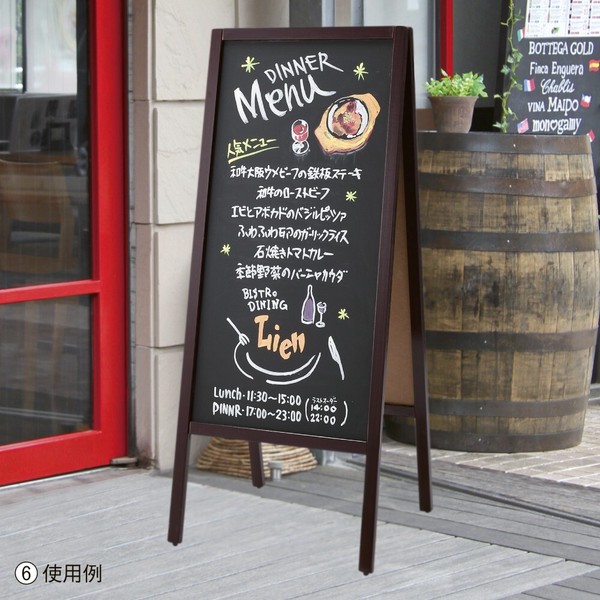 DINNER
Menu
人気メニュー
和牛大阪ウメビーフの鉄板ステーキ
和牛のローストビーフ
エビとアボカドのバジルピッツァ
ふわふわ石アのガーリックライス
石焼きトマトカレー
季節野菜のバーニャカウダ
BISTRO
DINING
Lien
Lunch・11:30～15:00
DINNR・17:00～23:00
(ラストオーダー
14:00
22:00)
BOTTEGA GOLD
Finca Enguera
Chablis
VINA MAIPO
monogamy
⑥ 使用例